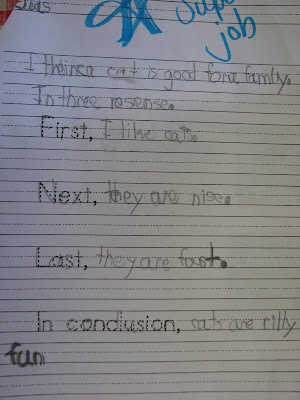 Super
job
I theinca cat is good fora family.
In three resense.
First, I like cats.
Next, they are nise.
Last, they are fast.
In conclusion, cats are rilly
fun